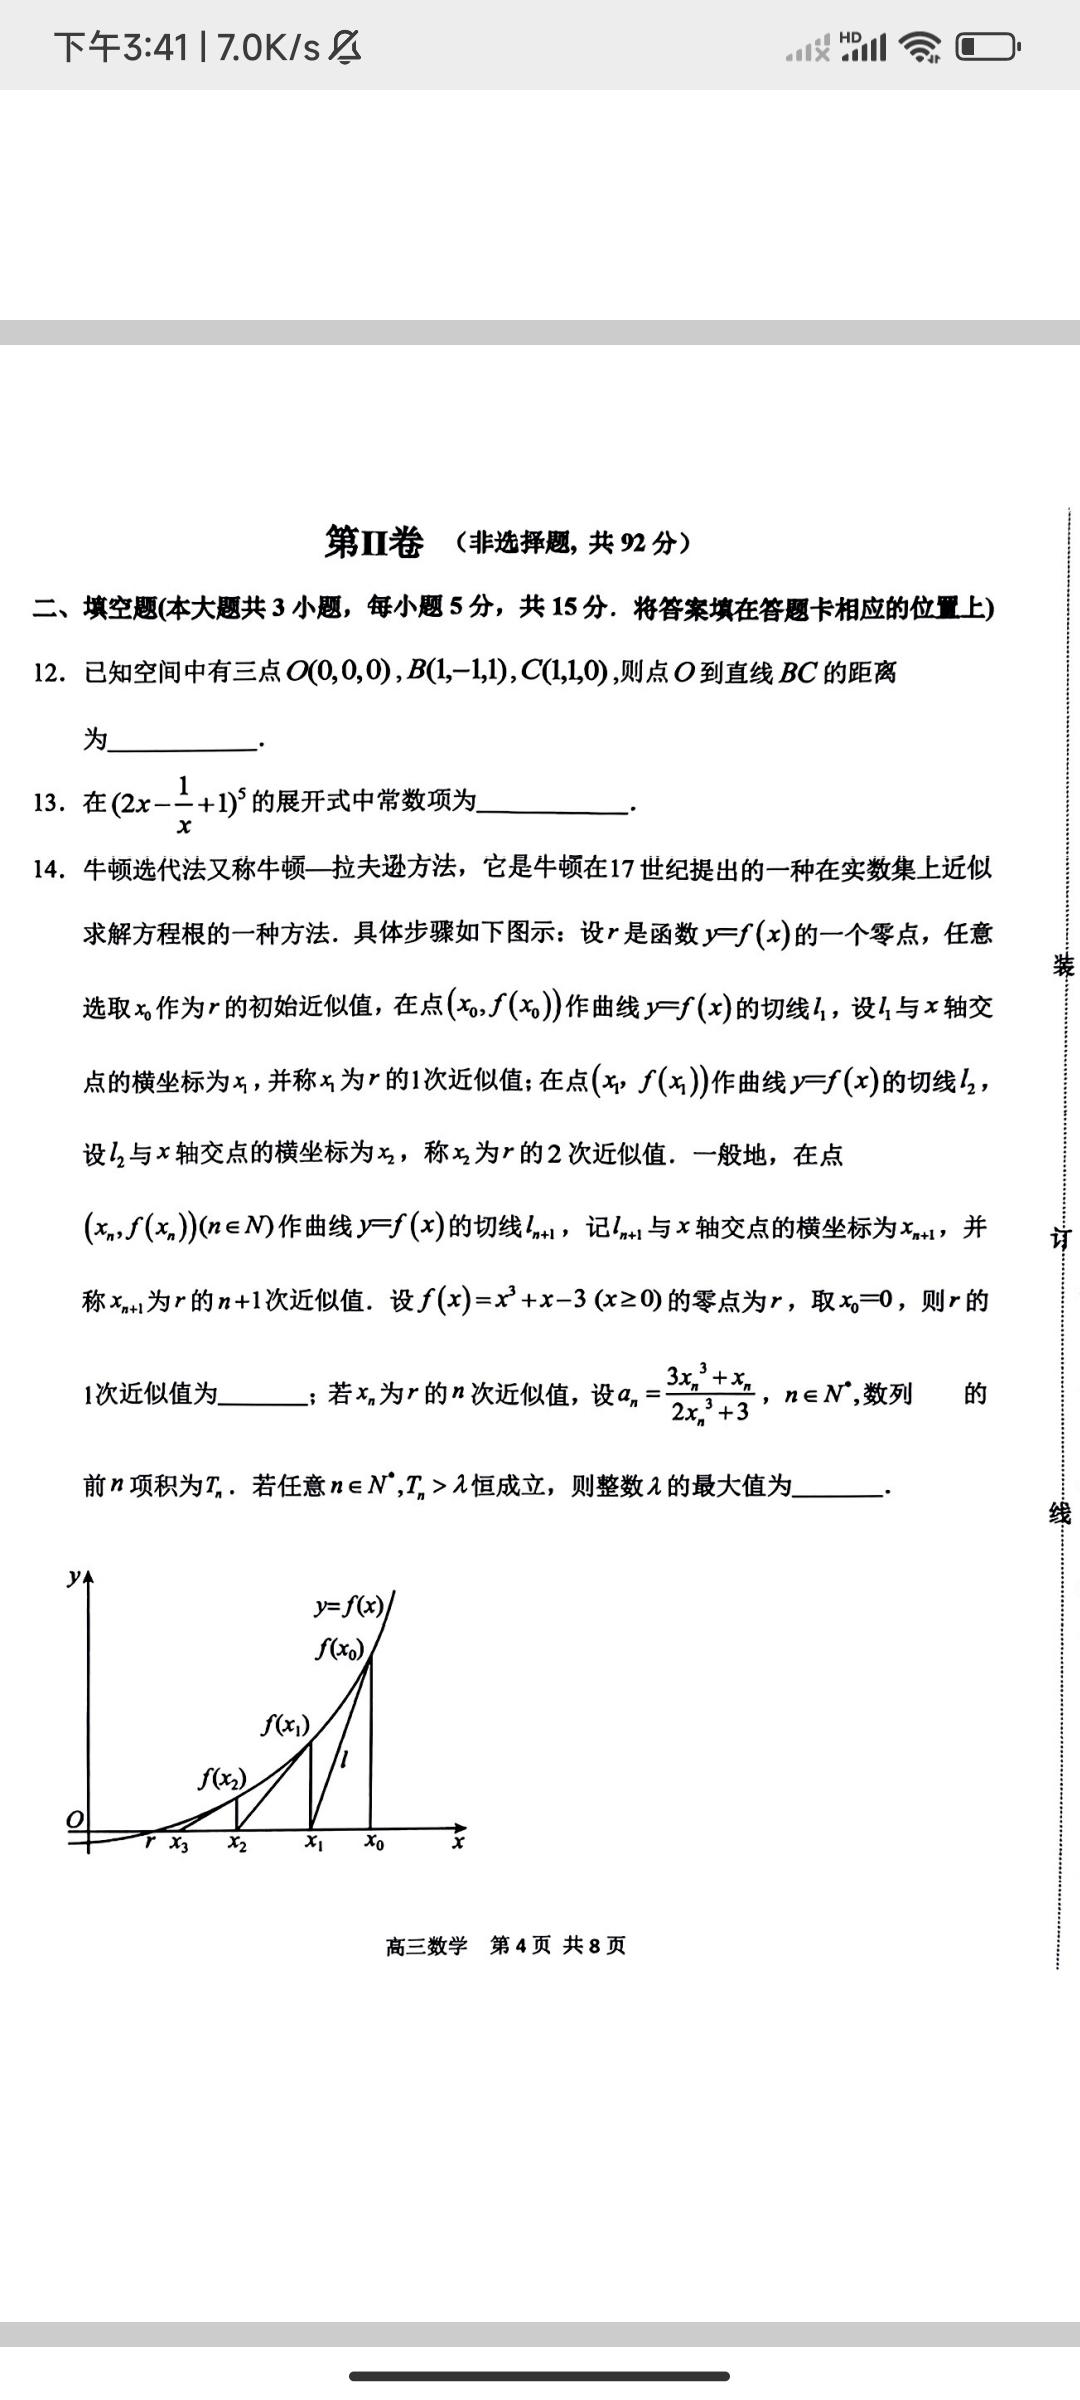 下午3:41 | 7.0K/s
HD
第II卷 （非选择题, 共 92 分）
二、填空题(本大题共 3 小题，每小题 5 分，共 15 分．将答案填在答题卡相应的位置上)
12．已知空间中有三点 O(0,0,0) , B(1,−1,1), C(1,1,0) ,则点 O 到直线 BC 的距离
为____________.
13．在 (2x−1/x+1)⁵ 的展开式中常数项为____________.
14．牛顿迭代法又称牛顿—拉夫逊方法，它是牛顿在17 世纪提出的一种在实数集上近似
求解方程根的一种方法．具体步骤如下图示：设 r 是函数 y=f(x)的一个零点，任意
选取 x₀ 作为 r 的初始近似值，在点(x₀, f(x₀))作曲线 y=f(x)的切线 l₁，设 l₁ 与 x 轴交
点的横坐标为 x₁，并称 x₁ 为 r 的1次近似值；在点(x₁, f(x₁))作曲线 y=f(x)的切线 l₂，
设 l₂ 与 x 轴交点的横坐标为 x₂，称 x₂ 为 r 的 2 次近似值．一般地，在点
(xₙ, f(xₙ))(n∈N)作曲线 y=f(x)的切线 lₙ₊₁，记 lₙ₊₁ 与 x 轴交点的横坐标为 xₙ₊₁，并
称 xₙ₊₁ 为 r 的 n+1次近似值．设 f(x)=x³+x−3 (x≥0) 的零点为 r，取 x₀=0，则 r 的
1次近似值为_______；若 xₙ 为 r 的 n 次近似值，设 aₙ = (3xₙ³+xₙ)/(2xₙ³+3)，n∈N*,数列 的
前 n 项积为 Tₙ．若任意 n∈N*,Tₙ > λ 恒成立，则整数 λ 的最大值为_______.
y
y=f(x)
f(x₀)
f(x₁)
l
f(x₂)
O
r x₃ x₂ x₁ x₀ x
高三数学 第 4 页 共 8 页
装
订
线